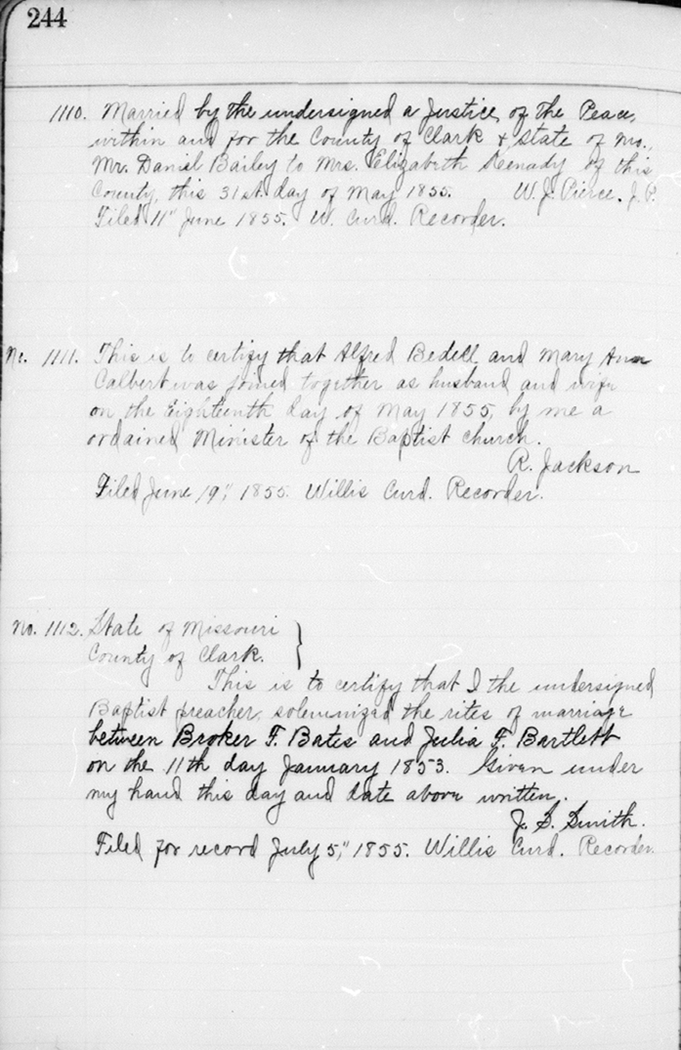 244
1110. Married by the undersigned a Justice of the Peace,
within and for the County of Clark & State of Mo.,
Mr. Daniel Bailey to Mrs. Elizabeth Kenady of this
County, this 31st. day of May 1855. W. J. Pierce. J. P.
Filed 11" June 1855. W. Curd. Recorder.
No. 1111. This is to certify that Alfred Bedell and Mary Ann
Calbert was joined together as husband and wife
on the Eighteenth day of May 1855, by me a
ordained Minister of the Baptist church.
R. Jackson
Filed June 19," 1855. Willis Curd. Recorder.
No. 1112. State of Missouri }
County of Clark.
This is to certify that I the undersigned
Baptist preacher, solemnized the rites of marriage
between Broker F. Bates and Julia F. Bartlett
on the 11th day January 1853. Given under
my hand this day and date above written.
J. S. Smith.
Filed for record July 5," 1855. Willis Curd. Recorder.